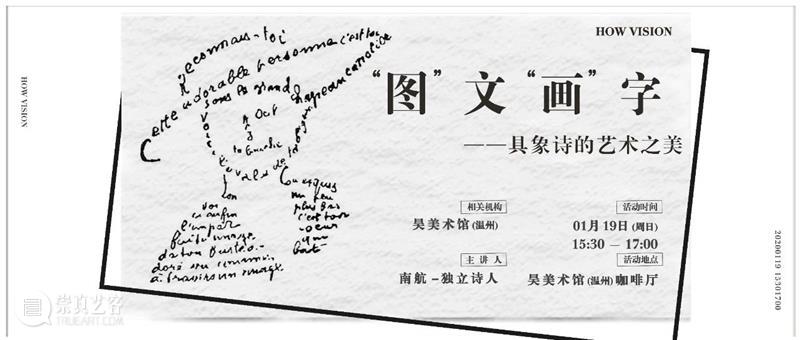 HOW VISION
HOW VISION
Reconnais-toi
Cette adorable personne c'est toi
sous le grand chapeau canotier
Oeil
la bouche
un peu
plus bas
c'est ton
coeur
qui
bat
Voi
ci enfin
l'impar
faite image
de ton buste a
doré vu comme
à travers un nuage
“图”文“画”字
——具象诗的艺术之美
相关机构
昊美术馆(温州)
活动时间
01月19日(周日)
15:30 — 17:00
主讲人
南航-独立诗人
活动地点
昊美术馆(温州)咖啡厅
20200119 15301700
崇真艺客
TRUEART.COM